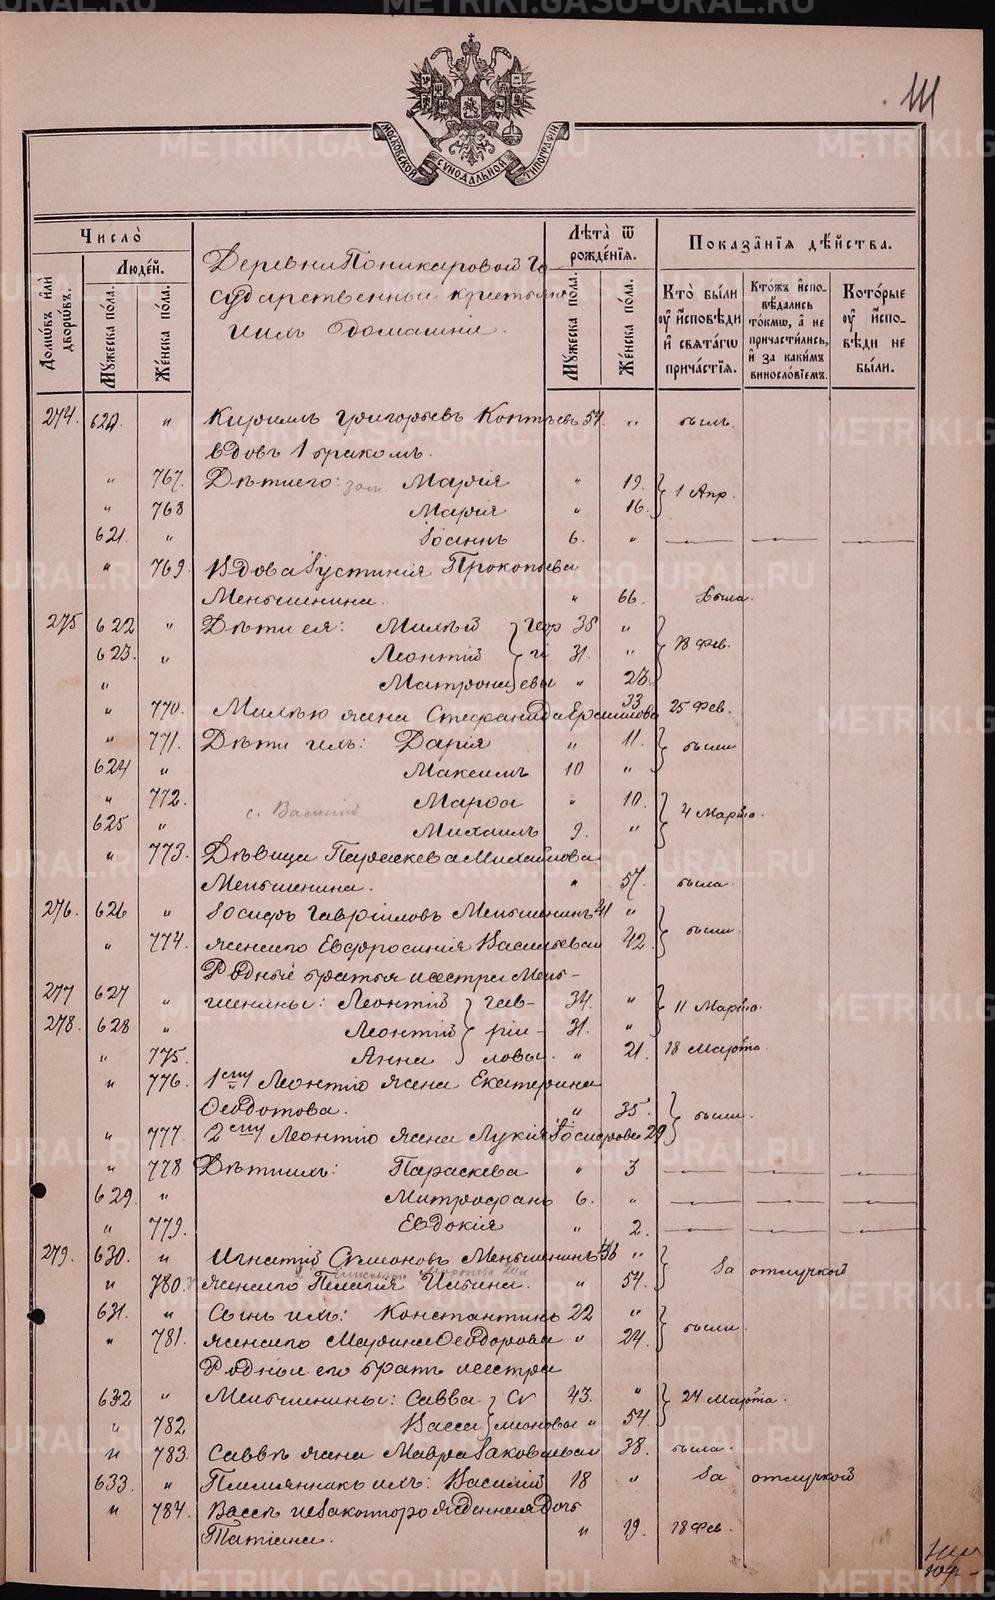 METRIKI.GASO-URAL.RU
111
МОСКОВСКОЙ СѴНОДАЛЬНОЙ ТИПОГРАФІИ
Число̀
Людей.
Домѡвъ и҆лѝ дворѡвъ.
Мꙋжеска по́ла.
Же́нска по́ла.
Деревни Поникаровой Го-
сударственные крестьяне
и ихъ домашніе.
Лѣта̀ ѿ рожде́нїѧ.
Мꙋжеска по́ла.
Же́нска по́ла.
Показа̑нїѧ дѣ́йства.
Кто̀ бы́ли оу҆ и҆сповѣди и҆ свѧта́гѡ прича́стїѧ.
Кто́жъ и҆спо-вѣдались то́кмѡ, а҆ не причасти́лись, и҆ за каки́мъ винослов́їемъ.
Кото́рые оу҆ и҆спо-вѣди не бы́ли.
274. 620 " Кириллъ Григорьевъ 57. " былъ.
вдовъ 1 бракомъ.
" 767. Дѣти его: Марія " 19. 1 Апр.
" 768 Марія " 16.
621. " Іоаннъ 6. " — — —
" 769. Вдова Іустинія Прокопьева
Меньшенина. " 66. Была.
275 622 " Дѣти ея: 35 " 18 Фев.
623. " Леонтій 31. "
" Матрона " 28.
" 770. жена Стефанида 33 25 Фев.
" 771. Дѣти ихъ: Дарія " 11. были
624 " Максимъ 10 "
" 772. Марѳа " 10. 4 Марта.
625 " с. Василій Михаилъ 9. "
" 773. Дѣвица Параскева Михайлова
Меньшенина. " 57. была.
276. 626 " Іосифъ Гавріиловъ Меньшенинъ 41 " были.
" 774. жена его Евфросинія Васильева 42.
Родные братья и сестра Мень-
277 627 " шенины: Леонтій Гав- 34. " 11 Марта.
278. 628 " Леонтій ріи- 31. "
" 775. Анна ловы. " 21. 18 Марта
" 776. 1му Леонтію жена Екатерина
Ѳеодотова. " 35. были.
" 777. 2му Леонтію жена Лукія Іосифова 29
" 778 Дѣти ихъ: Параскева " 3 — — —
629. " Митрофанъ 6. " — — —
" 779. Евдокія " 2. — — —
279. 630. " Игнатій Симоновъ Меньшенинъ 56 " За отлучкой
" 780. жена его Пелагія Ильина. " 54.
631. " Сынъ ихъ: Константинъ 22 " были.
" 781. жена его Марина Ѳеодорова " 24.
Родные его братъ и сестра
632 " Меньшенины: Савва Си 43. " 24 Марта.
" 782 Васса моновы " 54.
" 783. Саввѣ жена Мавра Іаковлева 38. была.
633. " Племянникъ ихъ: Василій 18 " За отлучкой
" 784. Вассѣ незаконнорожденная дочь
Татіана. " 19. 18 Фев.